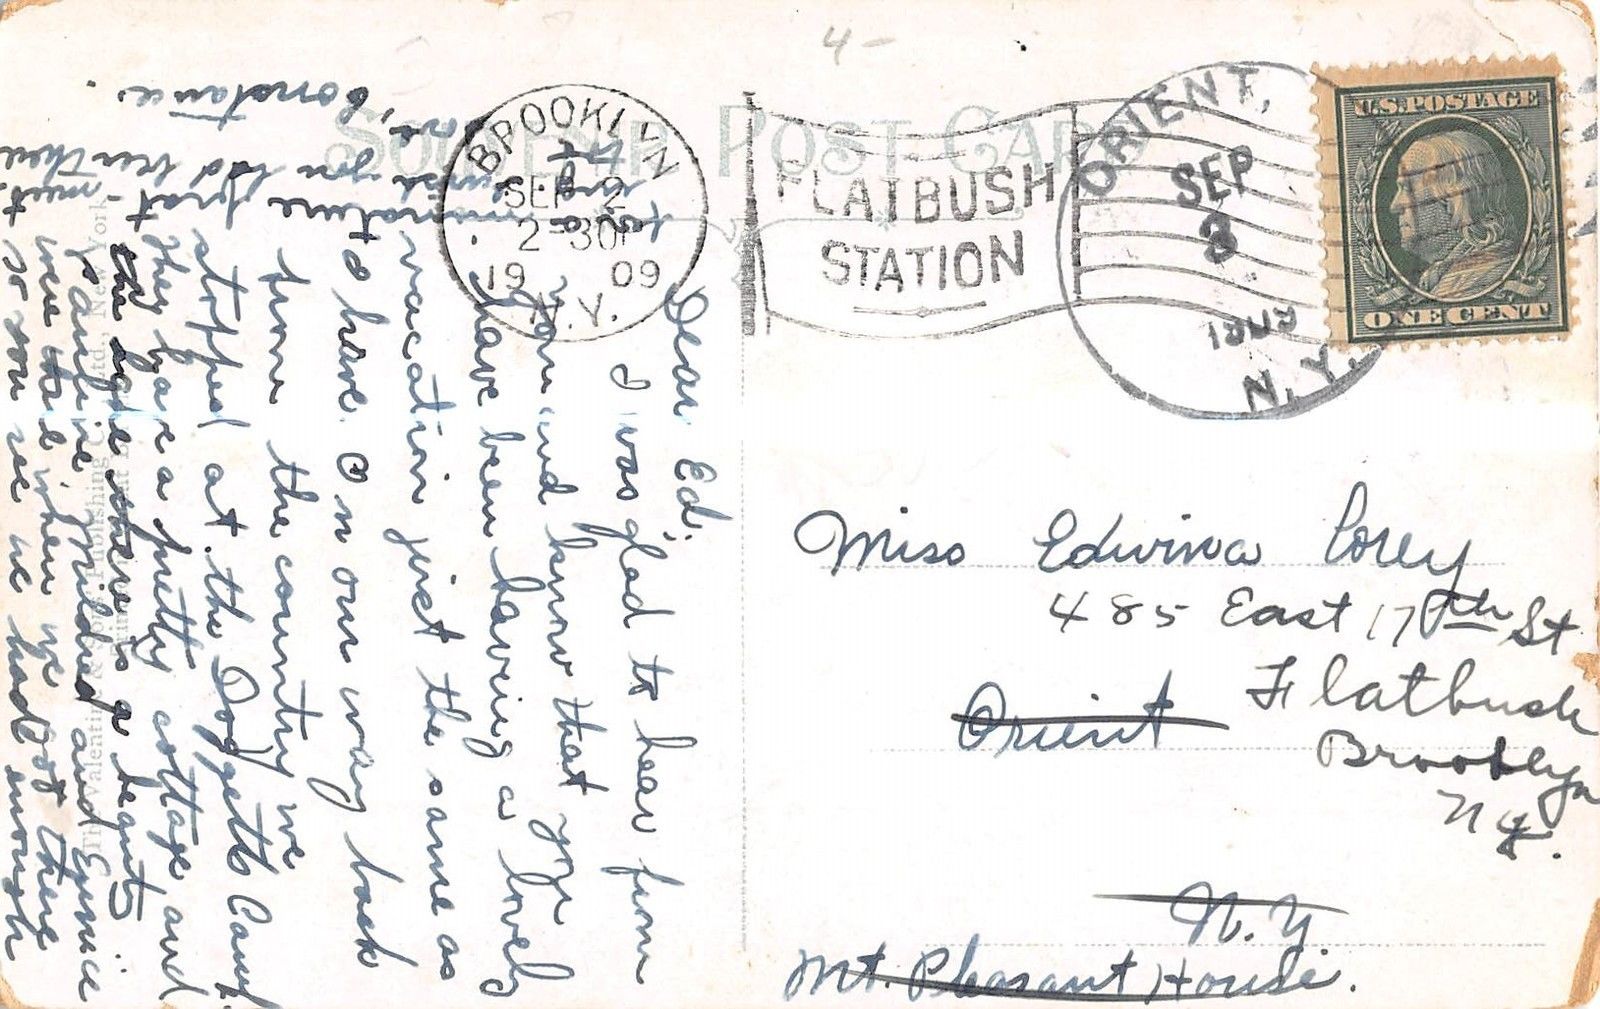 4-
SOUVENIR POST CARD
BROOKLYN
SEP 2
2-30P
1909
N.Y.
FLATBUSH
STATION
ORIENT,
SEP
3
1909
N.Y.
U.S. POSTAGE
ONE CENT
Dear Ed,
I was glad to hear from
you and know that you
have been having a lovely
vacation just the same as
I have. On our way back
from the country we
stopped at the Doggetts Camp.
They have a pretty cottage and
the lake there is a beauty.
Janfire Mildred and Eunice
were there when we got there
so you see we had enough
Constance.
Miss Edwina Corey
485 East 17th St
Flatbush
Brooklyn
Ny.
Orient
N.Y
Mt. Pleasant House.
The Valentine & Sons Publishing Co., Ltd., New York